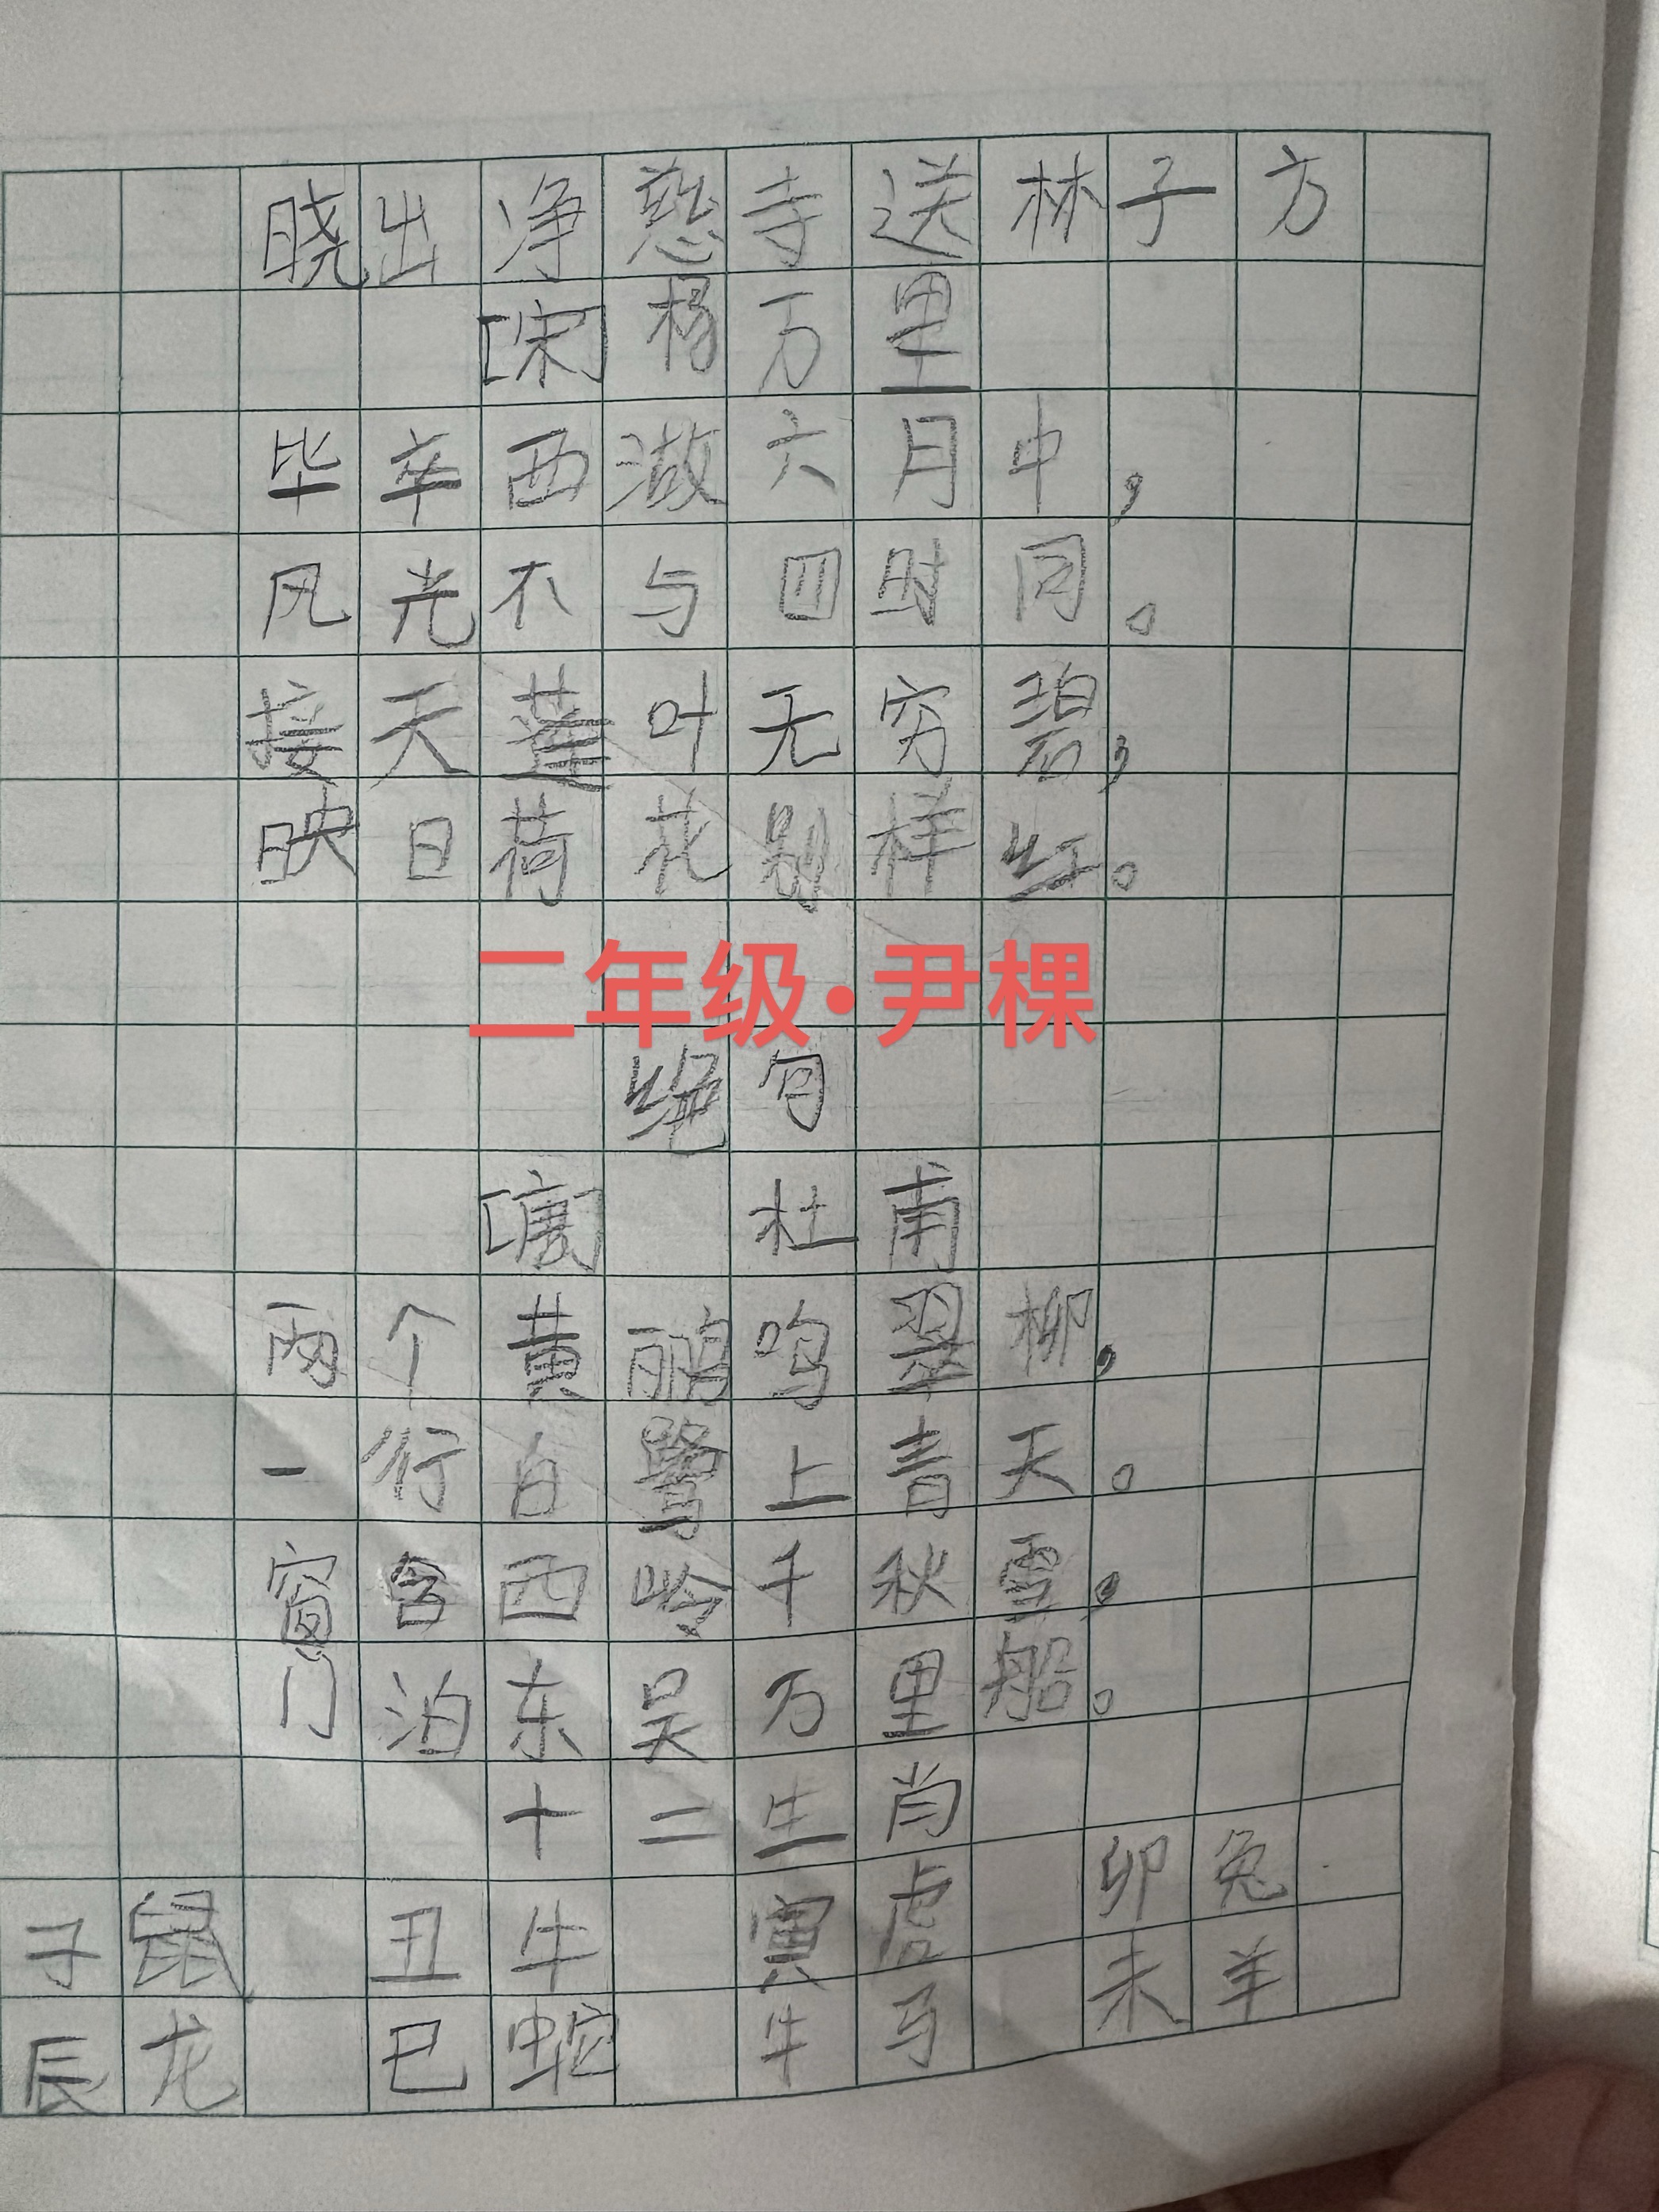 晓出净慈寺送林子方
[宋]杨万里
毕辛西湖六月中，
风光不与四时同。
接天莲叶无穷碧，
映日荷花别样红。
二年级·尹棵
绝句
[唐] 杜甫
两个黄鹂鸣翠柳，
一行白鹭上青天。
窗含西岭千秋雪，
门泊东吴万里船。
十二生肖
子鼠 丑牛 寅虎 卯兔
辰龙 巳蛇 牛马 未羊